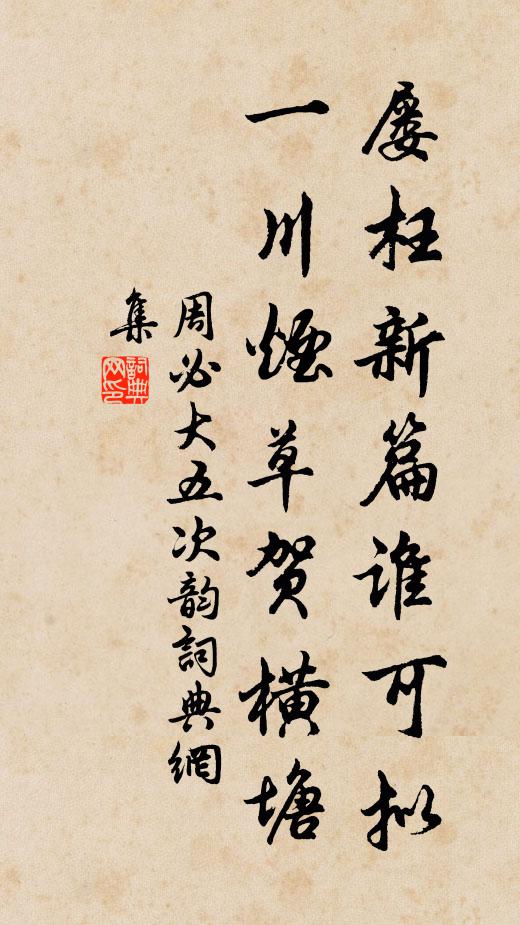 屡枉新篇谁可拟
一川煙草贺横塘
周必大五次韵詞典網
集
詞典網印